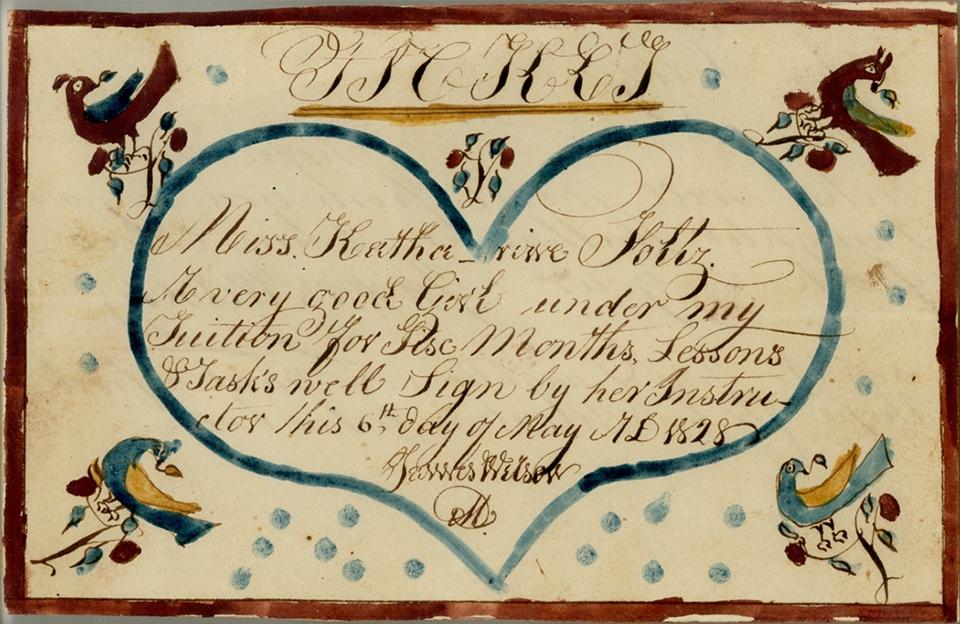 Miss. Katha-rine Foltz.
A very good Girl under my
Tuition For Six Months, Lessons
& Task's well Sign by her Instru-
ctor this 6th day of May AD 1828
James Wilson